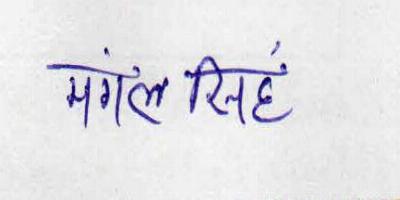 मगंल सिहं